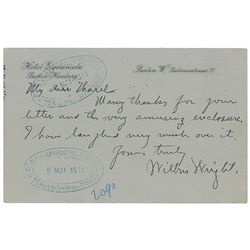 Hotel Esplanade
Berlin Hamburg
Berlin W.
My dear
Many thanks for your
letter and the very amusing enclosure.
I have laughed very much over it.
Yours truly
Wilbur Wright.
9 MAI 1911
2090